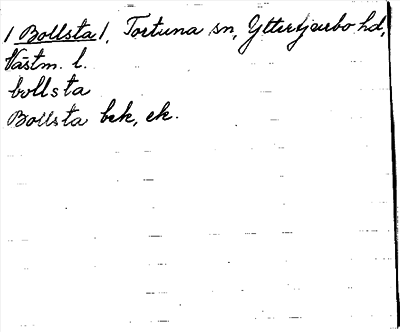 / Bollsta /, Tortuna sn, Yttertjurbo hd,
Västm. l.
bollsta
Bollsta bek, ek.